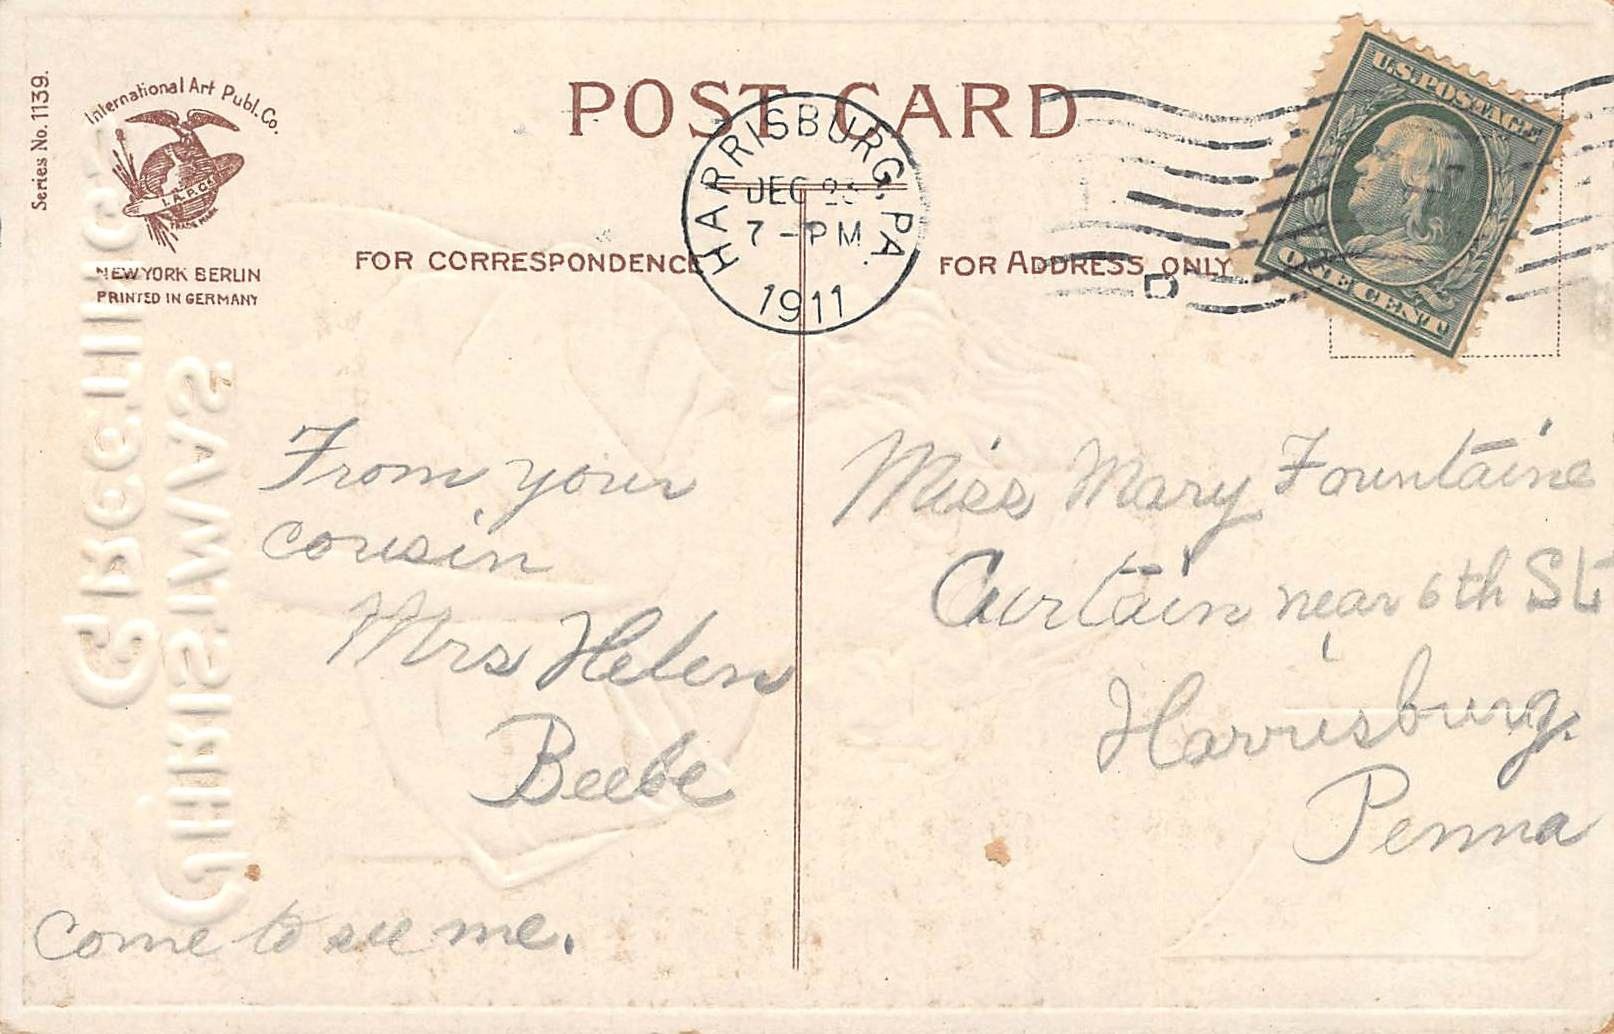 Series No. 1139.
International Art Publ. Co.
I.A.P.Co.
TRADE MARK
NEW YORK BERLIN
PRINTED IN GERMANY
POST CARD
HARRISBURG, PA.
DEC
7-PM
1911
U.S. POSTAGE
ONE CENT
FOR CORRESPONDENCE
FOR ADDRESS ONLY
D
GREETINGS
CHRISTMAS
From your
cousin
Mrs Helen
Beebe
Come to see me.
Miss Mary Fountaine
Curtain near 6th St
Harrisburg.
Penna